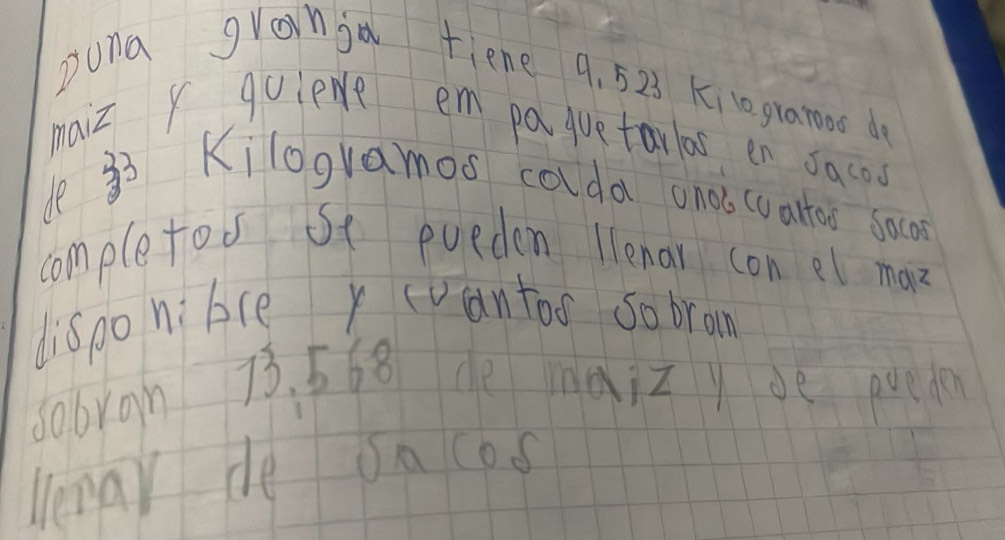 2) una granja tiene 9.523 Kilogramos de
maiz y quiere em paquetarlos en sacos
de 33 Kilogramos cada uno cuartos sacos
completos se pueden llenar con el maiz
disponibre y cuantos sobran
sobran 13.568 de maiz y se pueden
llenar de sacos